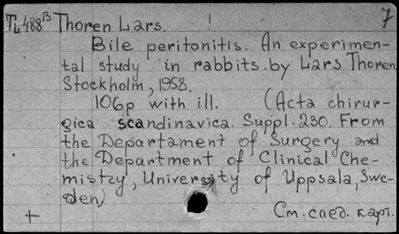 Tц488ᵝ Thoren Lars. 7
Bile peritonitis. An experimen-
tal study in rabbits. by Lars Thoren
Stockholm, 1958.
106p with ill. (Acta chirur-
gica scandinavica. Suppl. 230. From
the Departament of Surgery and
the Department of Clinical Che-
mistry, University of Uppsala, Swe-
den)
+ См. след. карт.